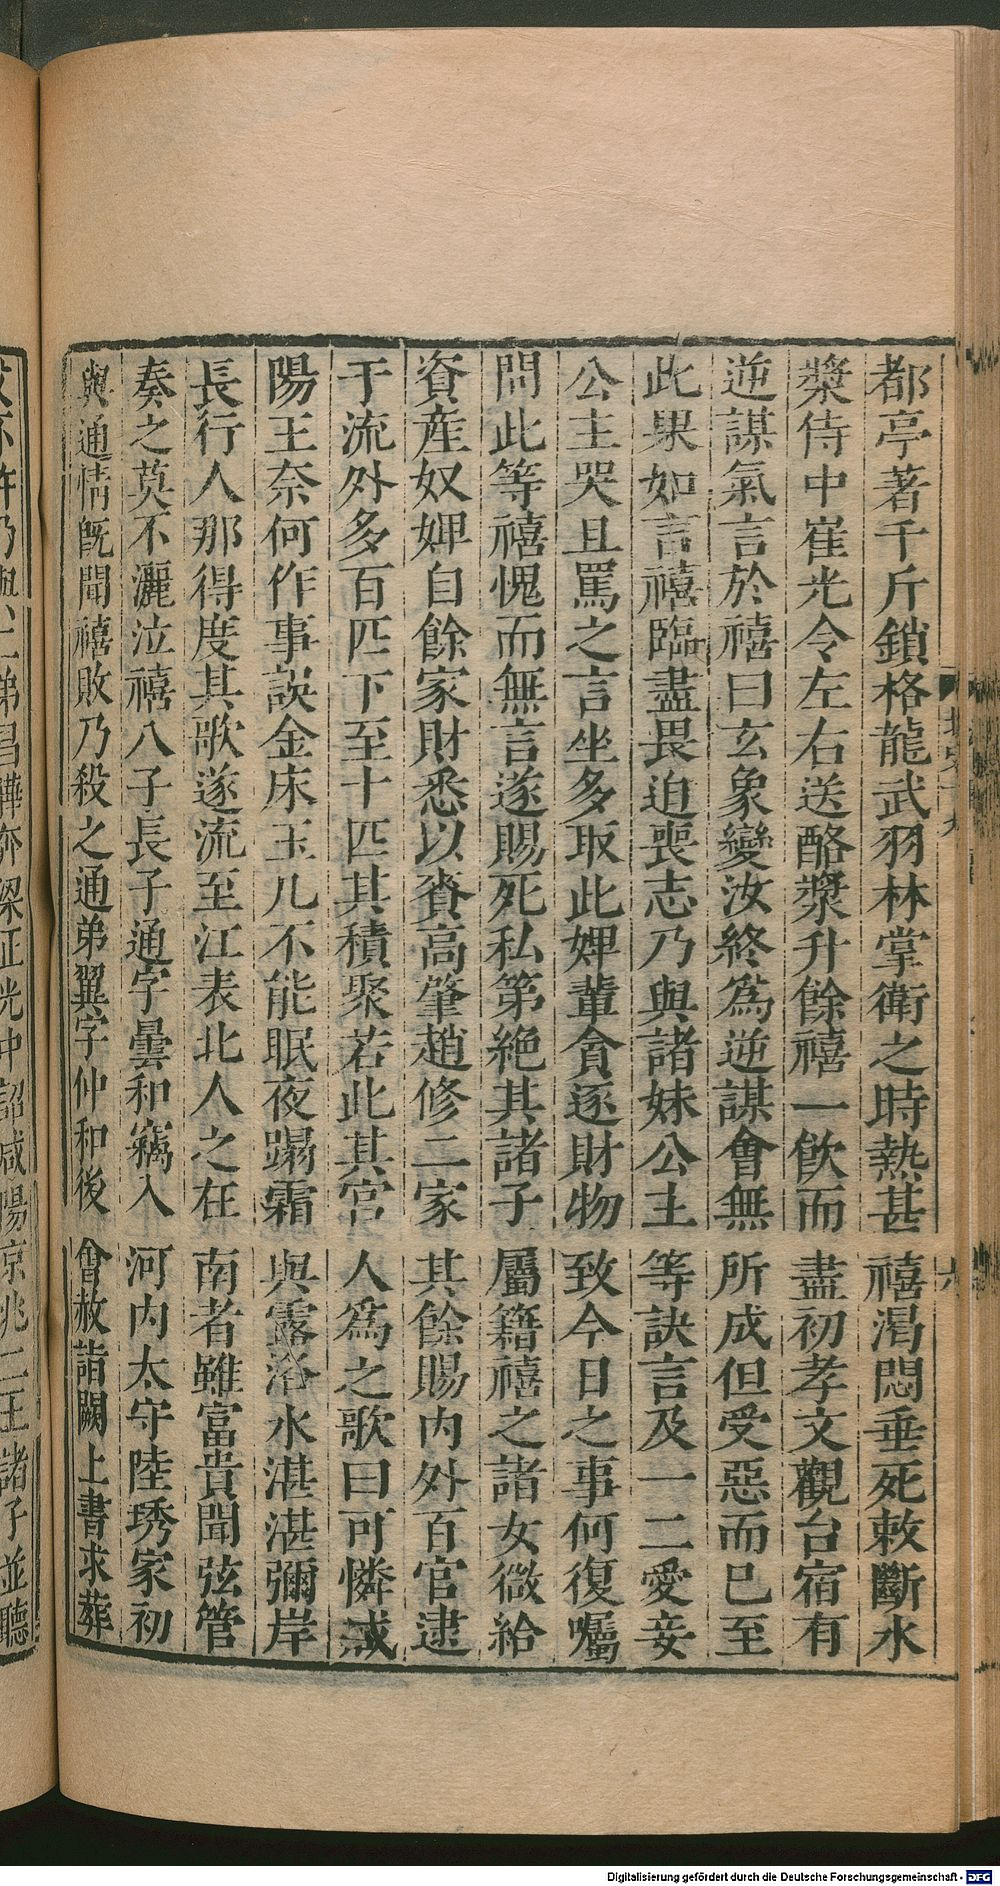 都亭著千斤鎖格龍武羽林掌衛之時熱甚禧渴悶垂死敕斷水
漿侍中崔光令左右送酪漿升餘禧一飲而盡初孝文觀台宿有
逆謀氣言於禧曰玄象變汝終爲逆謀會無所成但受惡而已至
此果如言禧臨盡畏迫喪志乃與諸妹公主等訣言及一二愛妾
公主哭且罵之言坐多取此婢輩貪逐財物致今日之事何復囑
問此等禧愧而無言遂賜死私第絶其諸子屬籍禧之諸女微給
資産奴婢自餘家財悉以賚高肇趙修二家其餘賜内外百官逮
于流外多百匹下至十匹其積聚若此其宮人爲之歌曰可憐咸
陽王奈何作事誤金床玉几不能眠夜蹋霜與露洛水湛湛彌岸
長行人那得度其歌遂流至江表北人之在南者雖富貴聞弦管
奏之莫不灑泣禧八子長子通字曇和竊入河内太守陸琇家初
與通情既聞禧敗乃殺之通弟翼字仲和後會赦詣闕上書求葬
Digitalisierung gefördert durch die Deutsche Forschungsgemeinschaft - DFG